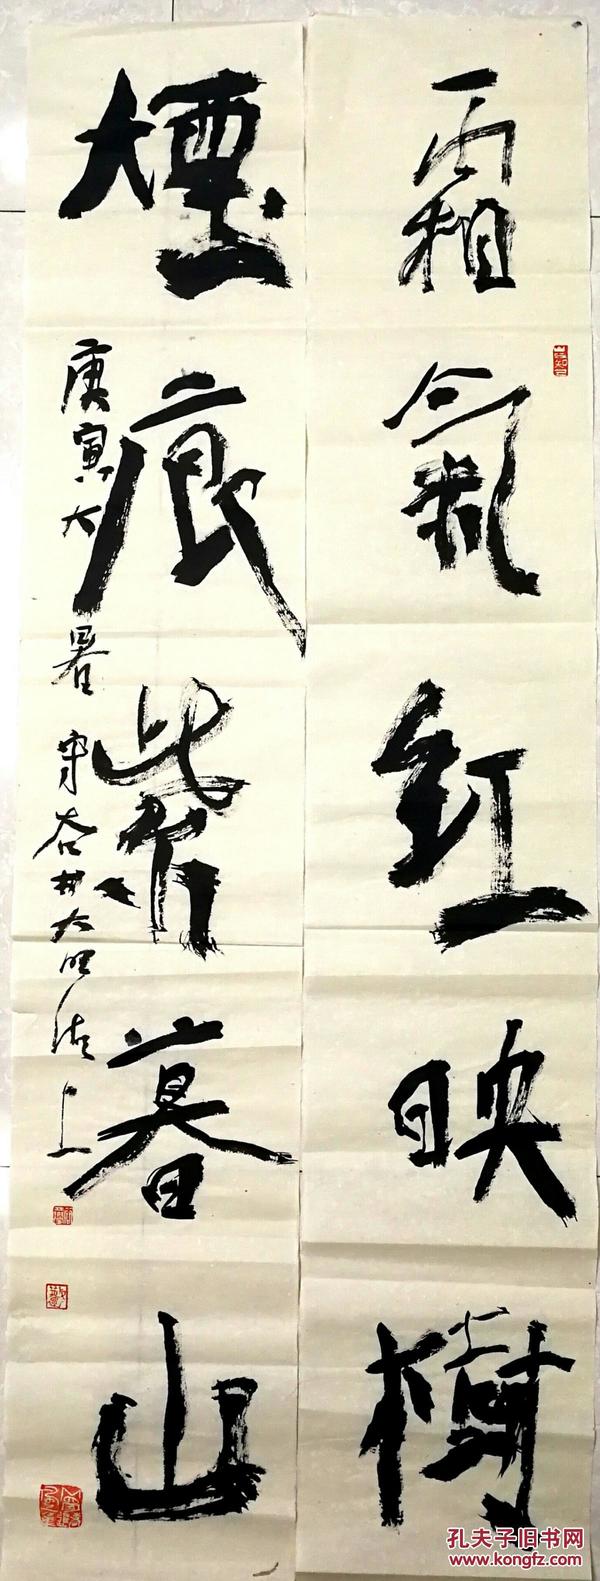 霜氣紅映樹
煙痕紫暮山
庚寅大暑
大明湖上
孔夫子旧书网
www.kongfz.com